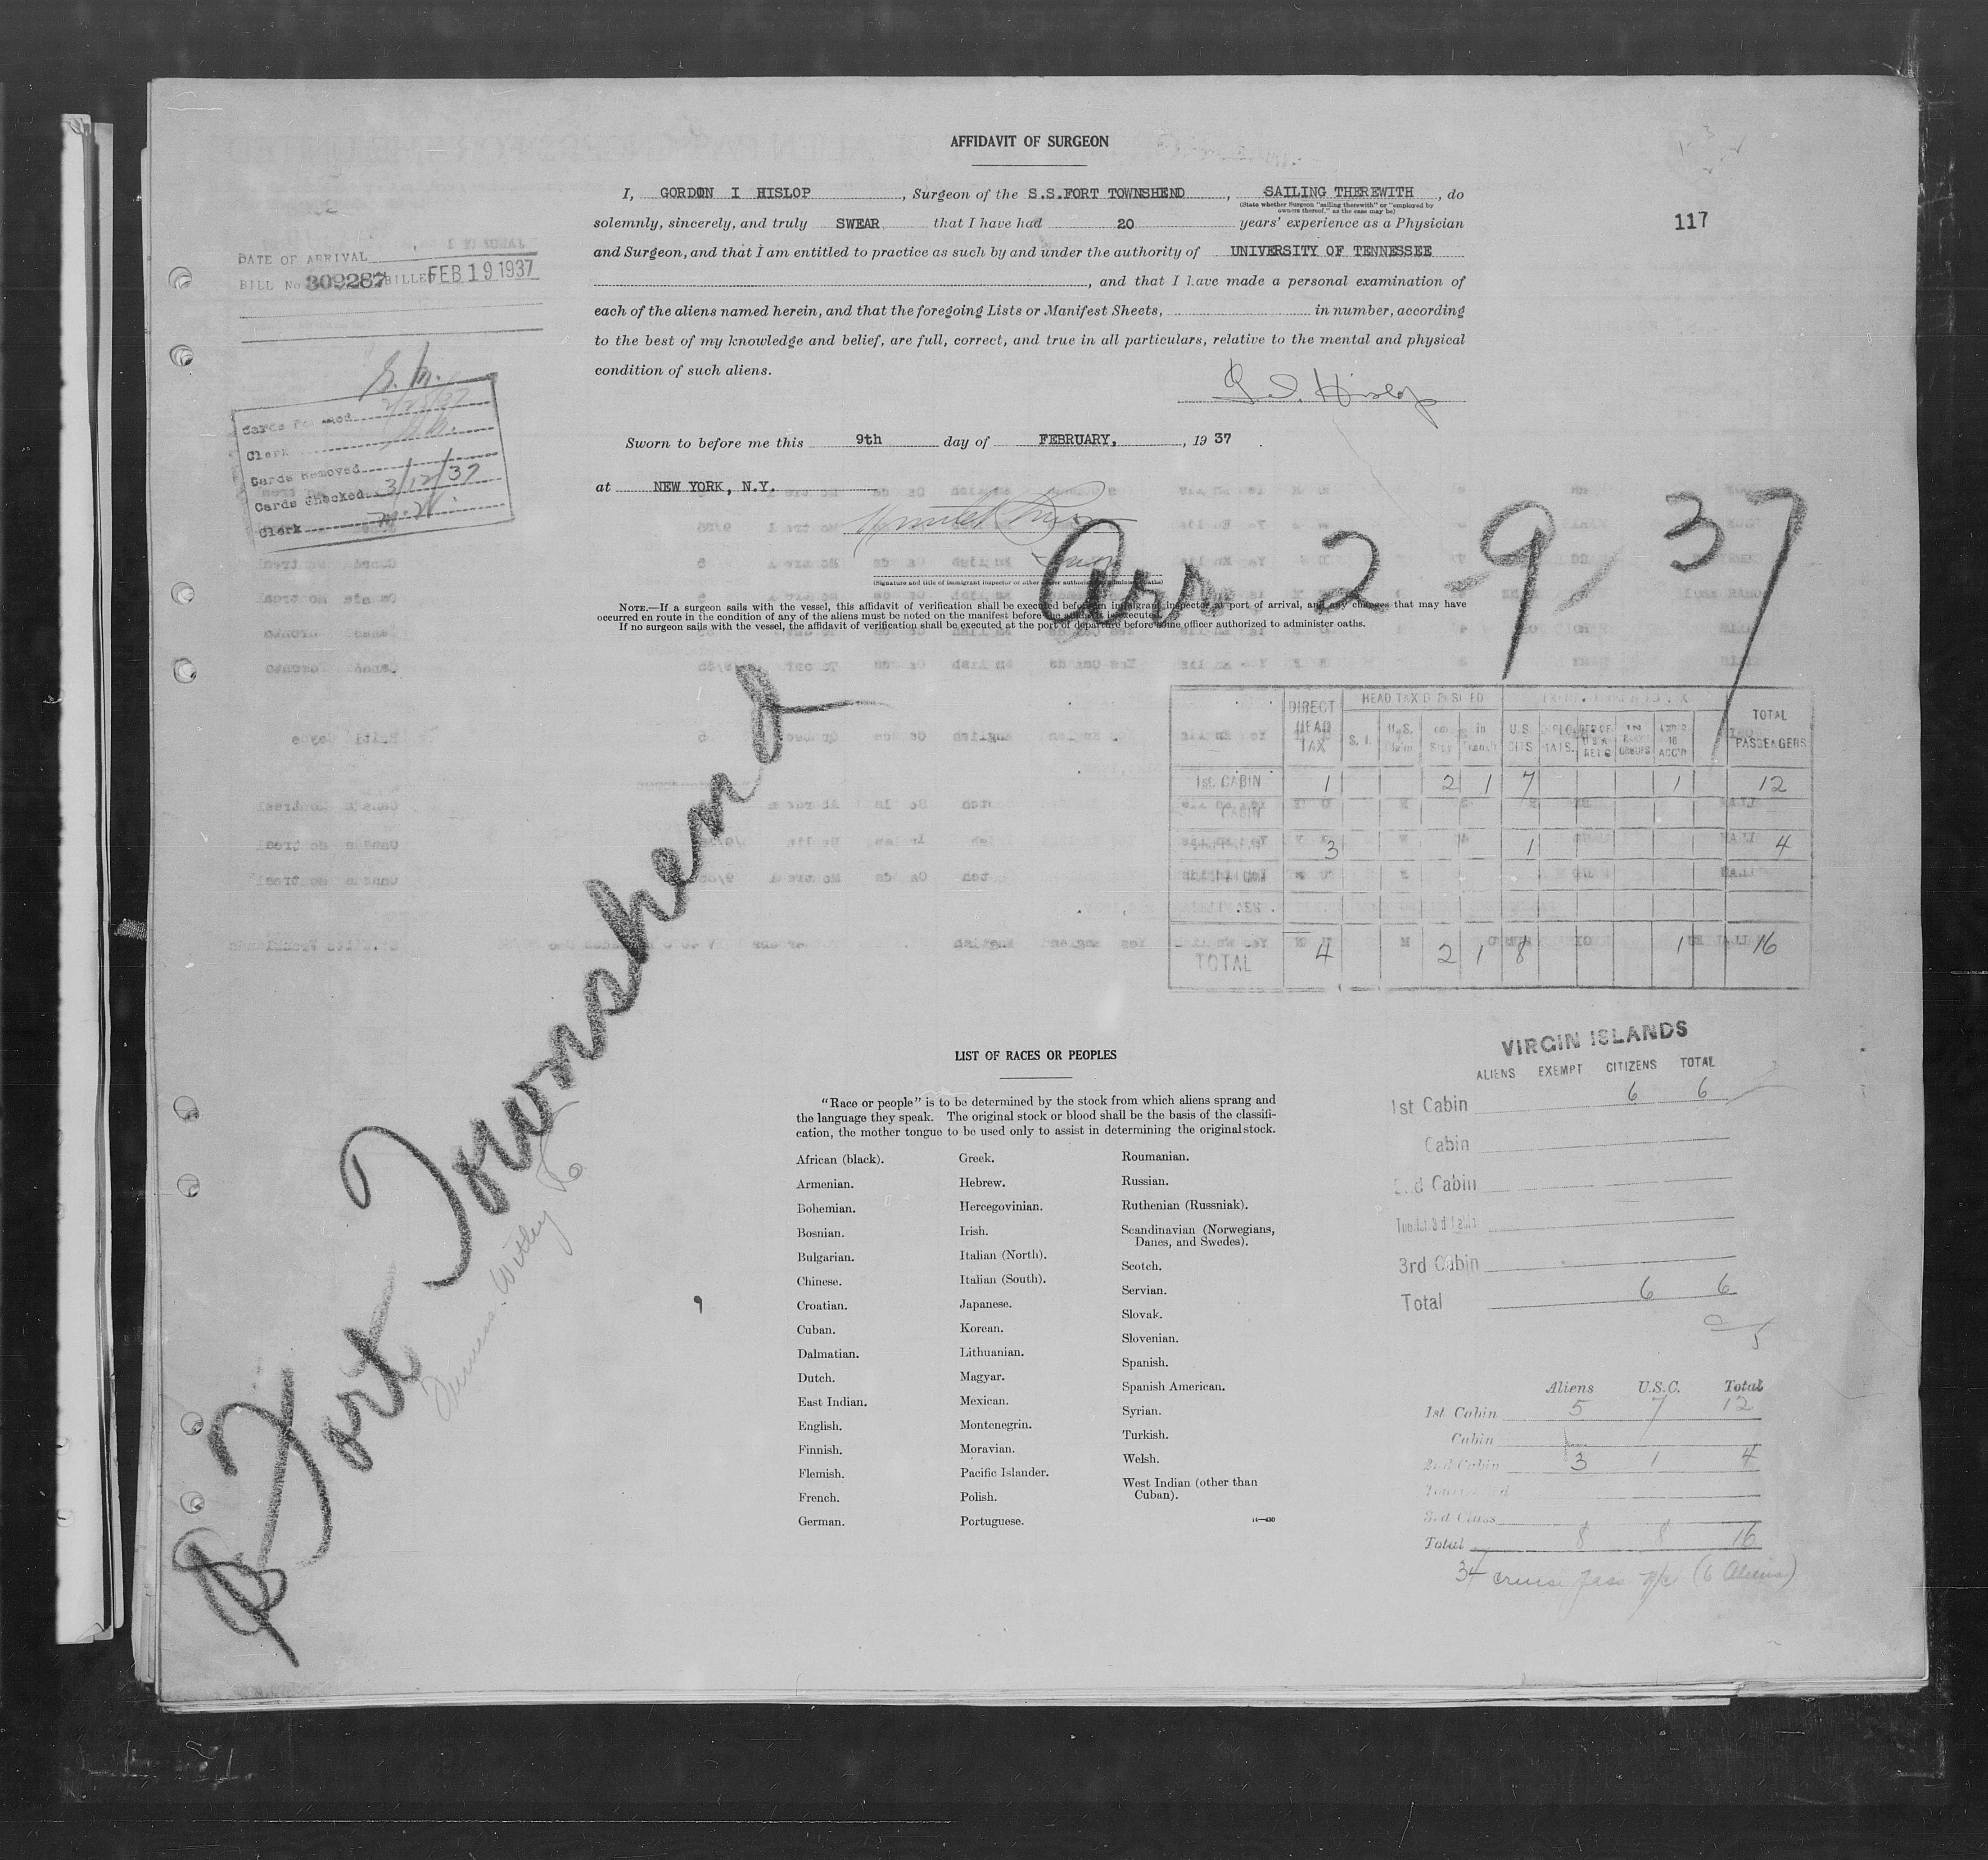 AFFIDAVIT OF SURGEON
I, GORDON I HISLOP, Surgeon of the S.S.FORT TOWNSHEND, SAILING THEREWITH, do
(State whether Surgeon "sailing therewith" or "employed by owners thereof," as the case may be)
solemnly, sincerely, and truly SWEAR that I have had 20 years' experience as a Physician
117
and Surgeon, and that I am entitled to practice as such by and under the authority of UNIVERSITY OF TENNESSEE
, and that I have made a personal examination of
each of the aliens named herein, and that the foregoing Lists or Manifest Sheets, in number, according
to the best of my knowledge and belief, are full, correct, and true in all particulars, relative to the mental and physical
condition of such aliens.
G. I. Hislop
DATE OF ARRIVAL
BILL No 309287 BILLED FEB 19 1937
Clerk
Cards Removed
Cards Checked 3/12/37
Clerk
Sworn to before me this 9th day of FEBRUARY, , 19 37 .
at NEW YORK, N.Y.
(Signature and title of immigrant inspector or other officer authorized to administer oaths)
Arr 2-9-37
NOTE.—If a surgeon sails with the vessel, this affidavit of verification shall be executed before an immigrant inspector at port of arrival, and any changes that may have
occurred en route in the condition of any of the aliens must be noted on the manifest before the affidavit is executed.
If no surgeon sails with the vessel, the affidavit of verification shall be executed at the port of departure before some officer authorized to administer oaths.
DIRECT HEAD TAX
TOTAL PASSENGERS
1st. CABIN 1 2 1 7 1 12
CABIN
3 1 4
TOTAL 4 2 1 8 1 16
Fort Townshend
VIRGIN ISLANDS
ALIENS EXEMPT CITIZENS TOTAL
1st Cabin 6 6
Cabin
2nd Cabin
3rd Cabin
Total 6 6
LIST OF RACES OR PEOPLES
"Race or people" is to be determined by the stock from which aliens sprang and
the language they speak. The original stock or blood shall be the basis of the classifi-
cation, the mother tongue to be used only to assist in determining the original stock.
African (black).
Armenian.
Bohemian.
Bosnian.
Bulgarian.
Chinese.
Croatian.
Cuban.
Dalmatian.
Dutch.
East Indian.
English.
Finnish.
Flemish.
French.
German.
Greek.
Hebrew.
Hercegovinian.
Irish.
Italian (North).
Italian (South).
Japanese.
Korean.
Lithuanian.
Magyar.
Mexican.
Montenegrin.
Moravian.
Pacific Islander.
Polish.
Portuguese.
Roumanian.
Russian.
Ruthenian (Russniak).
Scandinavian (Norwegians,
Danes, and Swedes).
Scotch.
Servian.
Slovak.
Slovenian.
Spanish.
Spanish American.
Syrian.
Turkish.
Welsh.
West Indian (other than
Cuban).
14—430
Aliens U.S.C. Total
1st Cabin 5 7 12
Cabin
2nd Cabin 3 1 4
3rd Class
Total 8 8 16
34 cruise pass (6 Aliens)